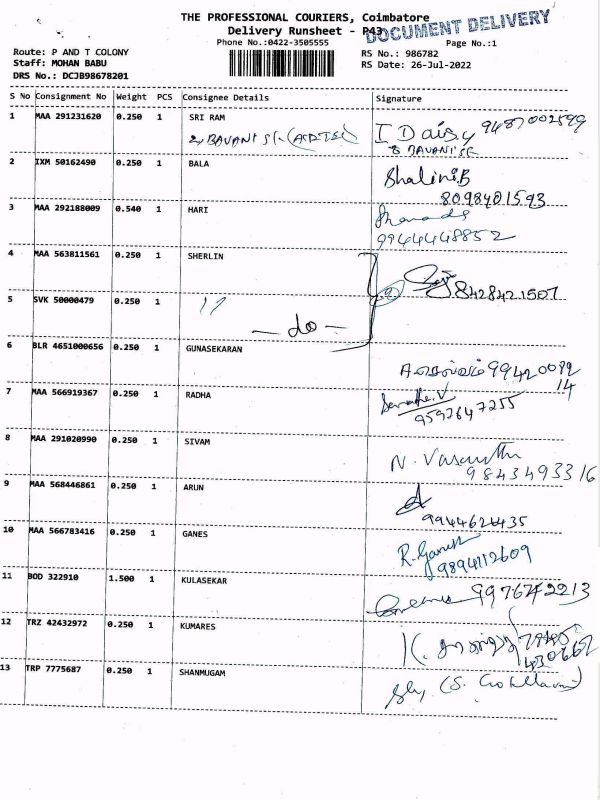 THE PROFESSIONAL COURIERS, Coimbatore
Delivery Runsheet - P43
DOCUMENT DELIVERY
Phone No.:0422-3505555
Page No.:1
Route: P AND T COLONY
RS No.: 986782
Staff: MOHAN BABU
RS Date: 26-Jul-2022
DRS No.: DCJB98678201
S No Consignment No Weight PCS Consignee Details Signature
1 MAA 291231620 0.250 1 SRI RAM I Daisy 9487002599
2, BAVANI St-(AIRTEL) 8 BAVANI St
2 IXM 50162490 0.250 1 BALA Shalini.B
8098401593
3 MAA 292188009 0.540 1 HARI
9944448852
4 MAA 563811561 0.250 1 SHERLIN
8428421507
5 SVK 50000479 0.250 1
— do —
6 BLR 4651000656 0.250 1 GUNASEKARAN 99420092
14
7 MAA 566919367 0.250 1 RADHA
9597647255
8 MAA 291020990 0.250 1 SIVAM N. Vasanthi
9843493316
9 MAA 568446861 0.250 1 ARUN
9944624435
10 MAA 566783416 0.250 1 GANES R. Ganesh
9894112609
11 BOD 322910 1.500 1 KULASEKAR 9976742213
12 TRZ 42432972 0.250 1 KUMARES
430662
13 TRP 7775687 0.250 1 SHANMUGAM